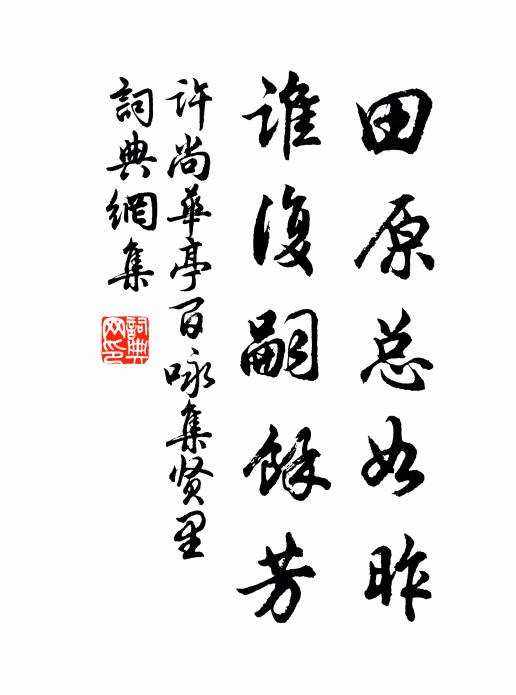 田原总如昨
谁復嗣餘芳
许尚華亭百咏集贤里
詞典網集
詞典网印